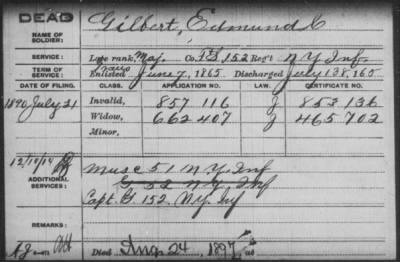 DEAD
Gilbert, Edmund C
NAME OF SOLDIER:
SERVICE: Late rank, Maj. Co. F.S, 152 Reg't N Y Inf.
TERM OF SERVICE: Enlisted June 7, 1865 Discharged July 138, 1865
DATE OF FILING. CLASS. APPLICATION NO. LAW. CERTIFICATE NO.
1890 July 21 Invalid, 857 116 J 853 136
Widow, 662 407 J 465 702
Minor,
12/10/04
ADDITIONAL SERVICES:
Musc 51 N Y Inf
G 52 N Y Inf
Capt. G. 152, N.Y. Inf
REMARKS:
Died Aug. 24, 1897, at